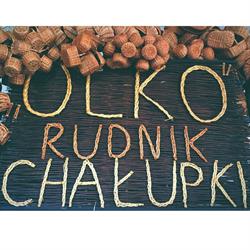 OLKO
RUDNIK
CHAŁUPKI